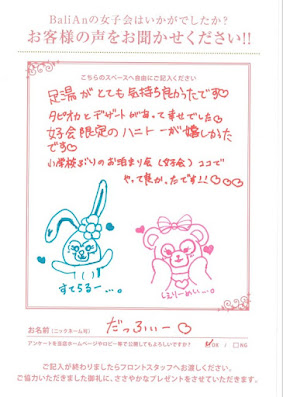 BaliAnの女子会はいかがでしたか？
お客様の声をお聞かせください!!
こちらのスペースへ自由にご記入ください
足湯がとても気持ち良かったです♡
タピオカとデザートがあって幸せでした♡
女子会限定のハニトーが嬉しかった
です♡
小学校ぶりのお泊まり会（女子会）ココで
やって良かったです!!♡♡♡
すてらるー…。
しぇりーめい…。
お名前（ニックネーム可） だっふぃー♡
アンケートを当店ホームページやロビー等で公開してもよろしいですか？ ☑OK / □NG
ご記入が終わりましたらフロントスタッフへお渡しください。
ご協力いただきました御礼に、ささやかなプレゼントをさせていただきます。